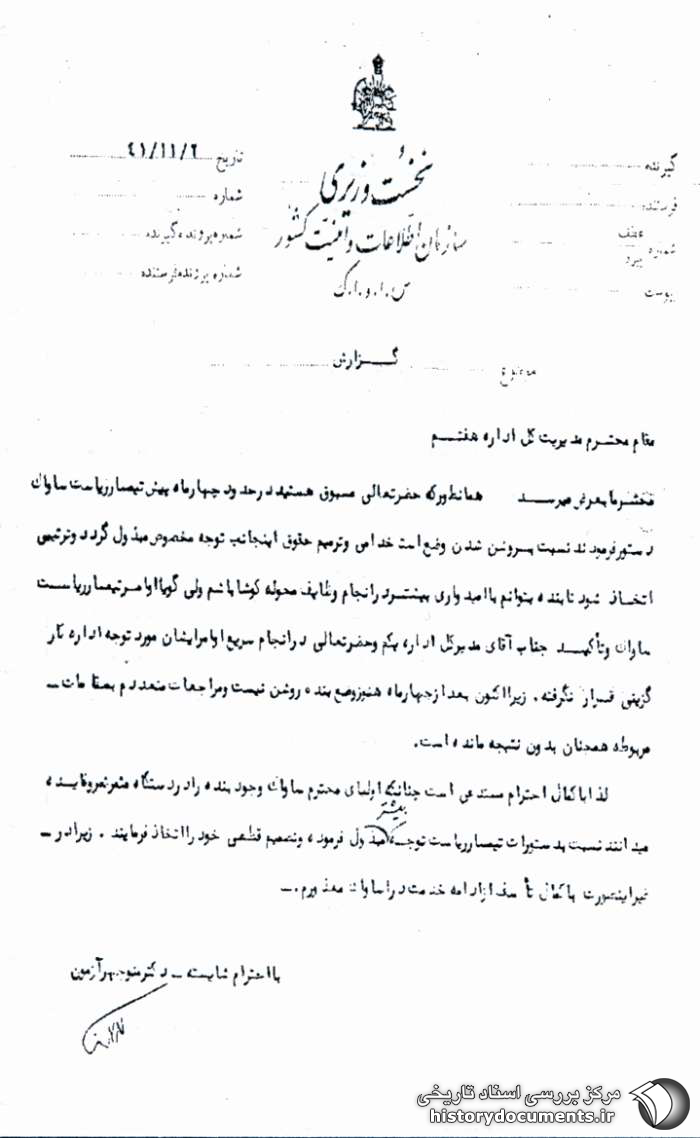 نخست وزیری
سازمان اطلاعات و امنیت کشور
س.ا.و.ا.ک
گیرنده
فرستنده
شماره عطف
پیرو
پیوست
تاریخ ۴۱/۱۱/۲
شماره
شماره پرونده گیرنده
شماره پرونده فرستنده
موضوع گزارش
مقام محترم مدیریت کل اداره هفتم
محترما بعرض میرسد همانطورکه حضرتعالی مسبوق هستید در حدود چهارماه پیش تیمسار ریاست ساواک
دستور فرمودند نسبت بروشن شدن وضع استخدامی و ترمیم حقوق اینجانب توجه مخصوص مبذول گردد و ترتیبی
اتخاذ شود تا بنده بتوانم با امیدواری بیشتر در انجام وظایف محوله کوشا باشم ولی گویا اوامر تیمسار ریاست
ساواک و تأکید جناب آقای مدیرکل اداره یکم و حضرتعالی در انجام سریع اوامر ایشان مورد توجه اداره کار
گزینی قرار نگرفته . زیرا اکنون بعد از چهارماه هنوز وضع بنده روشن نیست و مراجعات متعددم بمقامات ـ
مربوطه همچنان بدون نتیجه مانده است .
لذا با کمال احترام مستدعی است چنانکه اولیای محترم ساواک وجود بنده را در دستگاه مثمرثمر و فایده
بیشتر
میدانند نسبت بدستورات تیمسار ریاست توجه مبذول فرموده و تصمیم قطعی خود را اتخاذ فرمایند . زیرا در ـ
غیر اینصورت با کمال تأسف از ادامه خدمت در ساواک معذورم . ـ
با احترام شایسته ـ دکتر منوچهر آزمون
مرکز بررسی اسناد تاریخی
historydocuments.ir